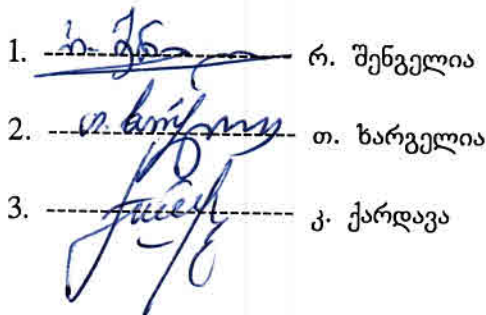 1. რ. შენგელია
2. თ. ხარგელია
3. კ. ქარდავა